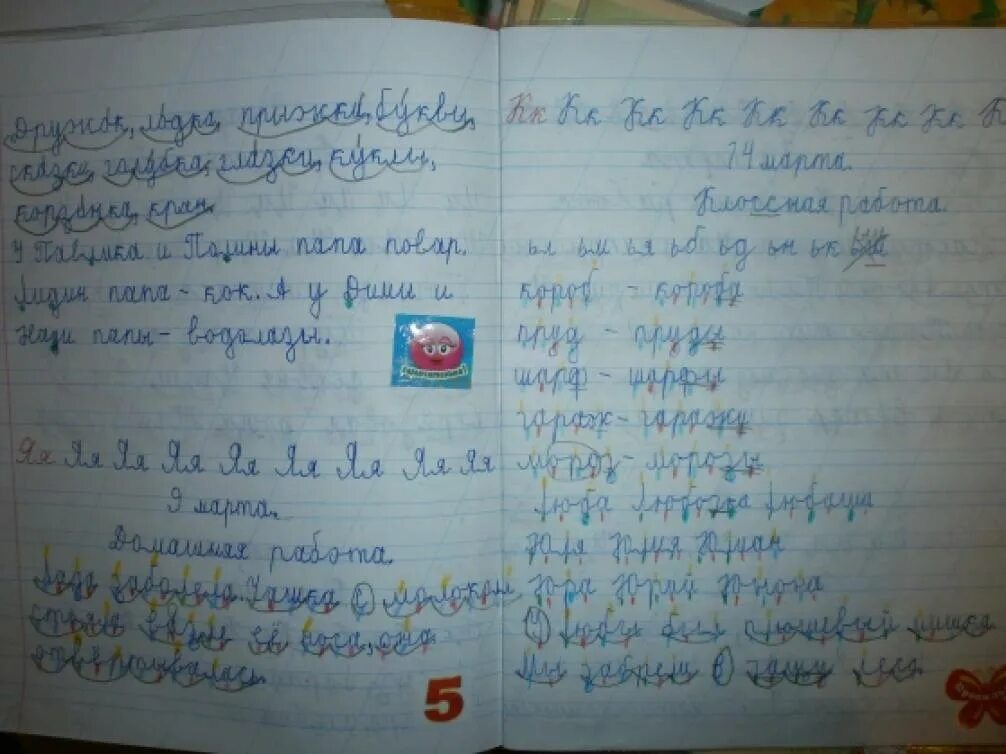 Дружок, лодка, прыжки, буквы,
сказки, голубка, глазки, куклы,
корзинка, кран.
У Павлика и Полины папа повар.
Лидин папа - кок. А у Димы и
Нади папы - водолазы.
Яя Яя Яя Яя Яя Яя Яя Яя Яя
9 марта.
Домашняя работа.
Лада заболела. Чашка с молоком
стояла её носа, она
5
Кк Кк Кк Кк Кк Кк Кк Кк К
14 марта.
Классная работа.
ьл ьм ья ьб ьд ьн ьк
короб - короба
пруд - пруды
шарф - шарфы
гараж - гаражи
мороз - морозы
Люба Любочка Любаша
Юля Юлия Юлиан
Юра Юрий
У Любы был плюшевый мишка
Мы в чащу леса